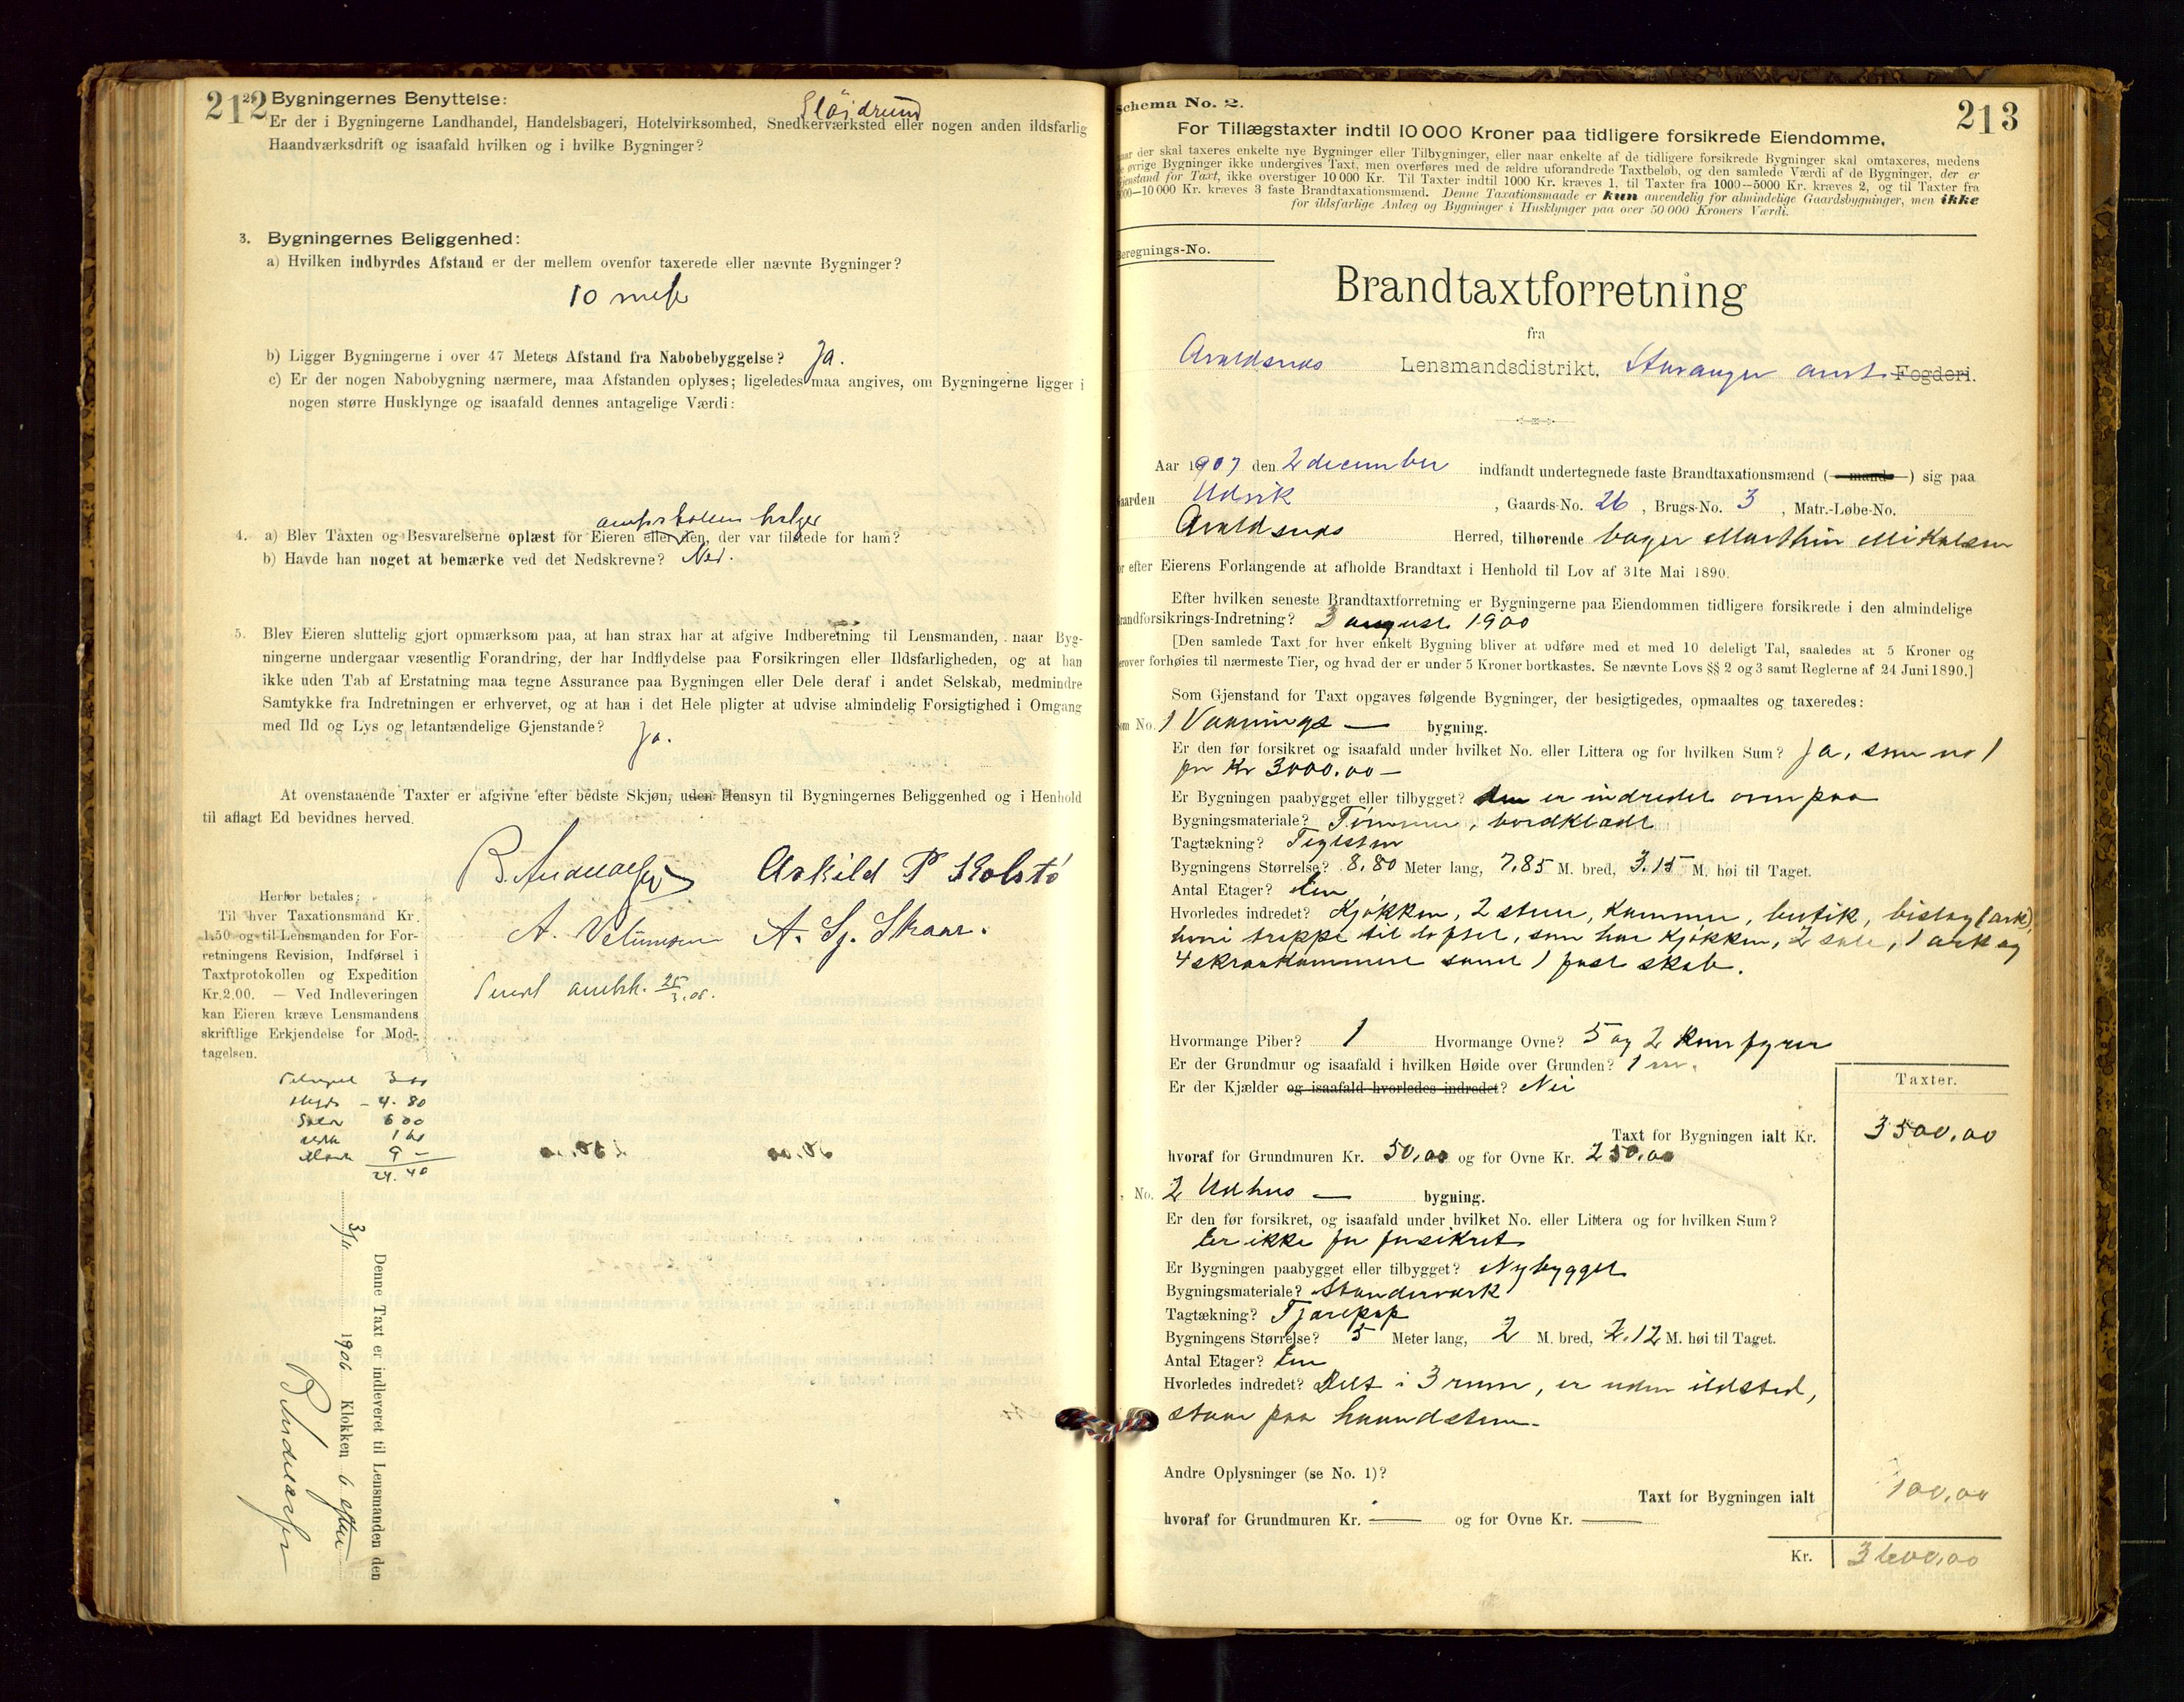 212
2. Bygningernes Benyttelse:
Slöidrum
Er der i Bygningerne Landhandel, Handelsbageri, Hotelvirksomhed, Snedkerværksted eller nogen anden ildsfarlig
Haandværksdrift og isaafald hvilken og i hvilke Bygninger?
3. Bygningernes Beliggenhed:
a) Hvilken indbyrdes Afstand er der mellem ovenfor taxerede eller nævnte Bygninger?
10 meter
b) Ligger Bygningerne i over 47 Meters Afstand fra Nabobebyggelse? Ja.
c) Er der nogen Nabobygning nærmere, maa Afstanden oplyses; ligeledes maa angives, om Bygningerne ligger i
nogen større Husklynge og isaafald dennes antagelige Værdi:
amtsskolens
4. a) Blev Taxten og Besvarelserne oplæst for Eieren eller den, der var tilstede for ham?
b) Havde han noget at bemærke ved det Nedskrevne? Nei.
5. Blev Eieren sluttelig gjort opmærksom paa, at han strax har at afgive Indberetning til Lensmanden, naar Byg-
ningerne undergaar væsentlig Forandring, der har Indflydelse paa Forsikringen eller Ildsfarligheden, og at han
ikke uden Tab af Erstatning maa tegne Assurance paa Bygningen eller Dele deraf i andet Selskab, medmindre
Samtykke fra Indretningen er erhvervet, og at han i det Hele pligter at udvise almindelig Forsigtighed i Omgang
med Ild og Lys og letantændelige Gjenstande? Ja.
At ovenstaaende Taxter er afgivne efter bedste Skjøn, uden Hensyn til Bygningernes Beliggenhed og i Henhold
til aflagt Ed bevidnes herved.
Askild P Kolstö
A. Sj. Skaar.
Herfor betales:
Til hver Taxationsmand Kr.
1.50 og til Lensmanden for For-
retningens Revision, Indførsel i
Taxtprotokollen og Expedition
Kr. 2.00. — Ved Indleveringen
kan Eieren kræve Lensmandens
skriftlige Erkjendelse for Mod-
tagelsen.
4.80
600
9 —
24.40
Denne Taxt er indleveret til Lensmanden den
3/11 1906 Klokken 6 efter
213
Schema No. 2.
For Tillægstaxter indtil 10 000 Kroner paa tidligere forsikrede Eiendomme,
naar der skal taxeres enkelte nye Bygninger eller Tilbygninger, eller naar enkelte af de tidligere forsikrede Bygninger skal omtaxeres, medens
de øvrige Bygninger ikke undergives Taxt, men overføres med de ældre uforandrede Taxtbeløb, og den samlede Værdi af de Bygninger, der er
Gjenstand for Taxt, ikke overstiger 10 000 Kr. Til Taxter indtil 1000 Kr. kræves 1, til Taxter fra 1000—5000 Kr. kræves 2, og til Taxter fra
5000—10 000 Kr. kræves 3 faste Brandtaxationsmænd. Denne Taxationsmaade er kun anvendelig for almindelige Gaardsbygninger, men ikke
for ildsfarlige Anlæg og Bygninger i Husklynger paa over 50 000 Kroners Værdi.
Beregnings-No.
Brandtaxtforretning
fra
Avaldsnes Lensmandsdistrikt, Stavanger amt Fogderi.
Aar 1907 den 2 december indfandt undertegnede faste Brandtaxationsmænd (— mand — ) sig paa
Gaarden Udvik, Gaards-No. 26, Brugs-No. 3, Matr.-Løbe-No.
Avaldsnes Herred, tilhørende bager Marthin Mikalsen
for efter Eierens Forlangende at afholde Brandtaxt i Henhold til Lov af 31te Mai 1890.
Efter hvilken seneste Brandtaxtforretning er Bygningerne paa Eiendommen tidligere forsikrede i den almindelige
Brandforsikrings-Indretning? 3 august 1900
[Den samlede Taxt for hver enkelt Bygning bliver at udføre med et med 10 deleligt Tal, saaledes at 5 Kroner og
derover forhøies til nærmeste Tier, og hvad der er under 5 Kroner bortkastes. Se nævnte Lovs §§ 2 og 3 samt Reglerne af 24 Juni 1890.]
Som Gjenstand for Taxt opgaves følgende Bygninger, der besigtigedes, opmaaltes og taxeredes:
Som No. 1 Vaanings — bygning.
Er den før forsikret og isaafald under hvilket No. eller Littera og for hvilken Sum? Ja, som no 1
for Kr 3000.00 —
Er Bygningen paabygget eller tilbygget? den er indredet ovenpaa
Bygningsmateriale? Tømmer, bordklædt
Tagtækning? Teglsten
Bygningens Størrelse? 8,80 Meter lang, 7,85 M. bred, 3,15 M. høi til Taget.
Antal Etager? En
Hvorledes indredet? Kjøkken, 2 stuer, kammer, butik, bislag (ark),
hvori trappe til loftet, som har kjøkken, 2 sale, 1 ark og
4 skraakammere samt 1 fast skab.
Hvormange Piber? 1 Hvormange Ovne? 5 og 2 komfyrer
Er der Grundmur og isaafald i hvilken Høide over Grunden? 1 m.
Er der Kjælder og isaafald hvorledes indredet? Nei
Taxter.
Taxt for Bygningen ialt Kr. 3500,00
hvoraf for Grundmuren Kr. 50,00 og for Ovne Kr. 250,00
, No. 2 Udhus — bygning.
Er den før forsikret, og isaafald under hvilket No. eller Littera og for hvilken Sum?
Er ikke før forsikret
Er Bygningen paabygget eller tilbygget? Nybygget
Bygningsmateriale? Standerværk
Tagtækning? Tjærepap
Bygningens Størrelse? 5 Meter lang, 2 M. bred, 2,12 M. høi til Taget.
Antal Etager? En
Hvorledes indredet? Delt i 3 rum, er uden ildsted,
staar paa haandsten.
Andre Oplysninger (se No. 1)?
Taxt for Bygningen ialt 100,00
hvoraf for Grundmuren Kr. — og for Ovne Kr. —
Kr. 3600,00